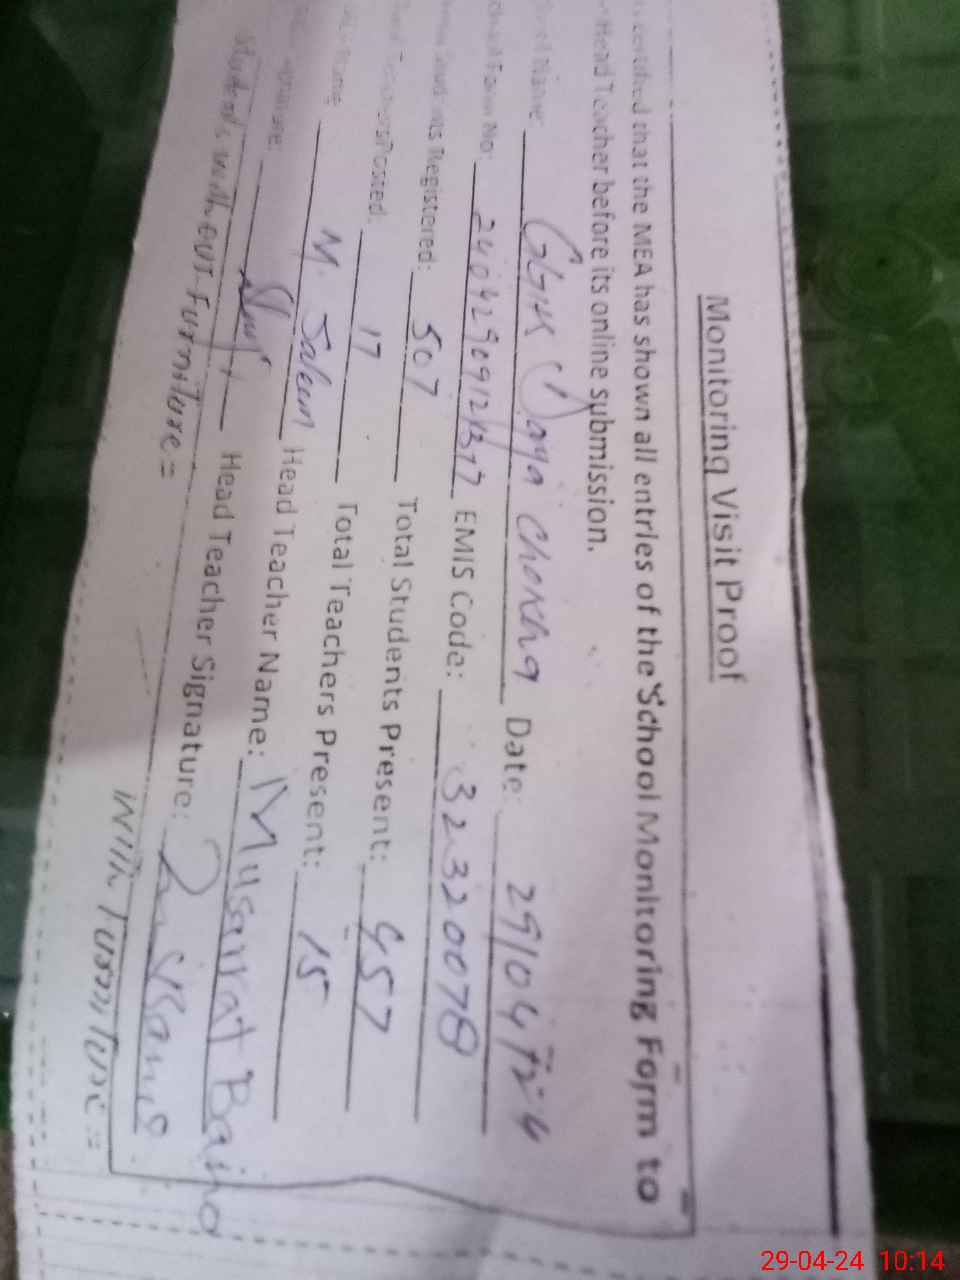 Monitoring Visit Proof
certified that the MEA has shown all entries of the School Monitoring Form to
Head Teacher before its online submission.
Name: GGHS Daya Chokha Date: 29/04/24
No: 24042909121317 EMIS Code: 32320078
Registered: 507 Total Students Present: 457
Posted: 17 Total Teachers Present: 15
Name: M. Saleem Head Teacher Name: Musarrat Bano
Head Teacher Signature:
Students with out furniture =
With Furniture =
29-04-24 10:14